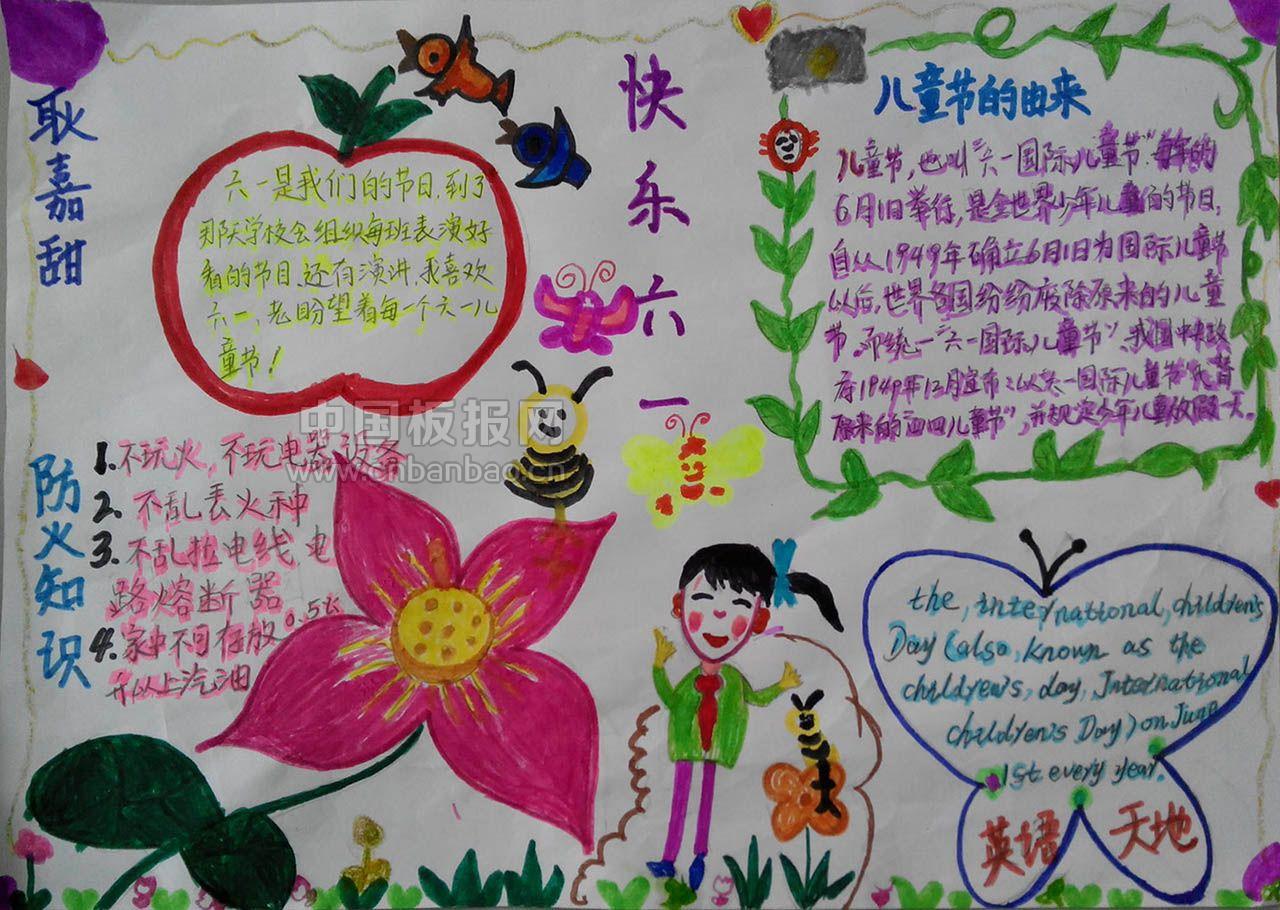 耿嘉甜
快乐六一
六一是我们的节日,到了
那天学校会组织每班表演好
看的节目、还有演讲,我喜欢
六一,老盼望着每一个六一儿
童节!
儿童节的由来
儿童节,也叫“六一国际儿童节”每年的
6月1日举行,是全世界少年儿童们的节日,
自从1949年确立6月1日为国际儿童节
以后,世界各国纷纷废除原来的儿童
节。而统一“六一国际儿童节”、我国中央政
府1949年12月宣布:以“六一国际儿童节”代替
原来的“四四儿童节”,并规定少年儿童放假一天。
防火知识
1.不玩火,不玩电器设备
2.不乱丢火种
3.不乱拉电线,电
路熔断器
4.家中不可存放0.5公
升以上汽油
the, international, children's
Day (also, known as the
children's, day, International
children's Day) on June
1st every year.
英语天地
中国板报网
www.cnbanbao.cn